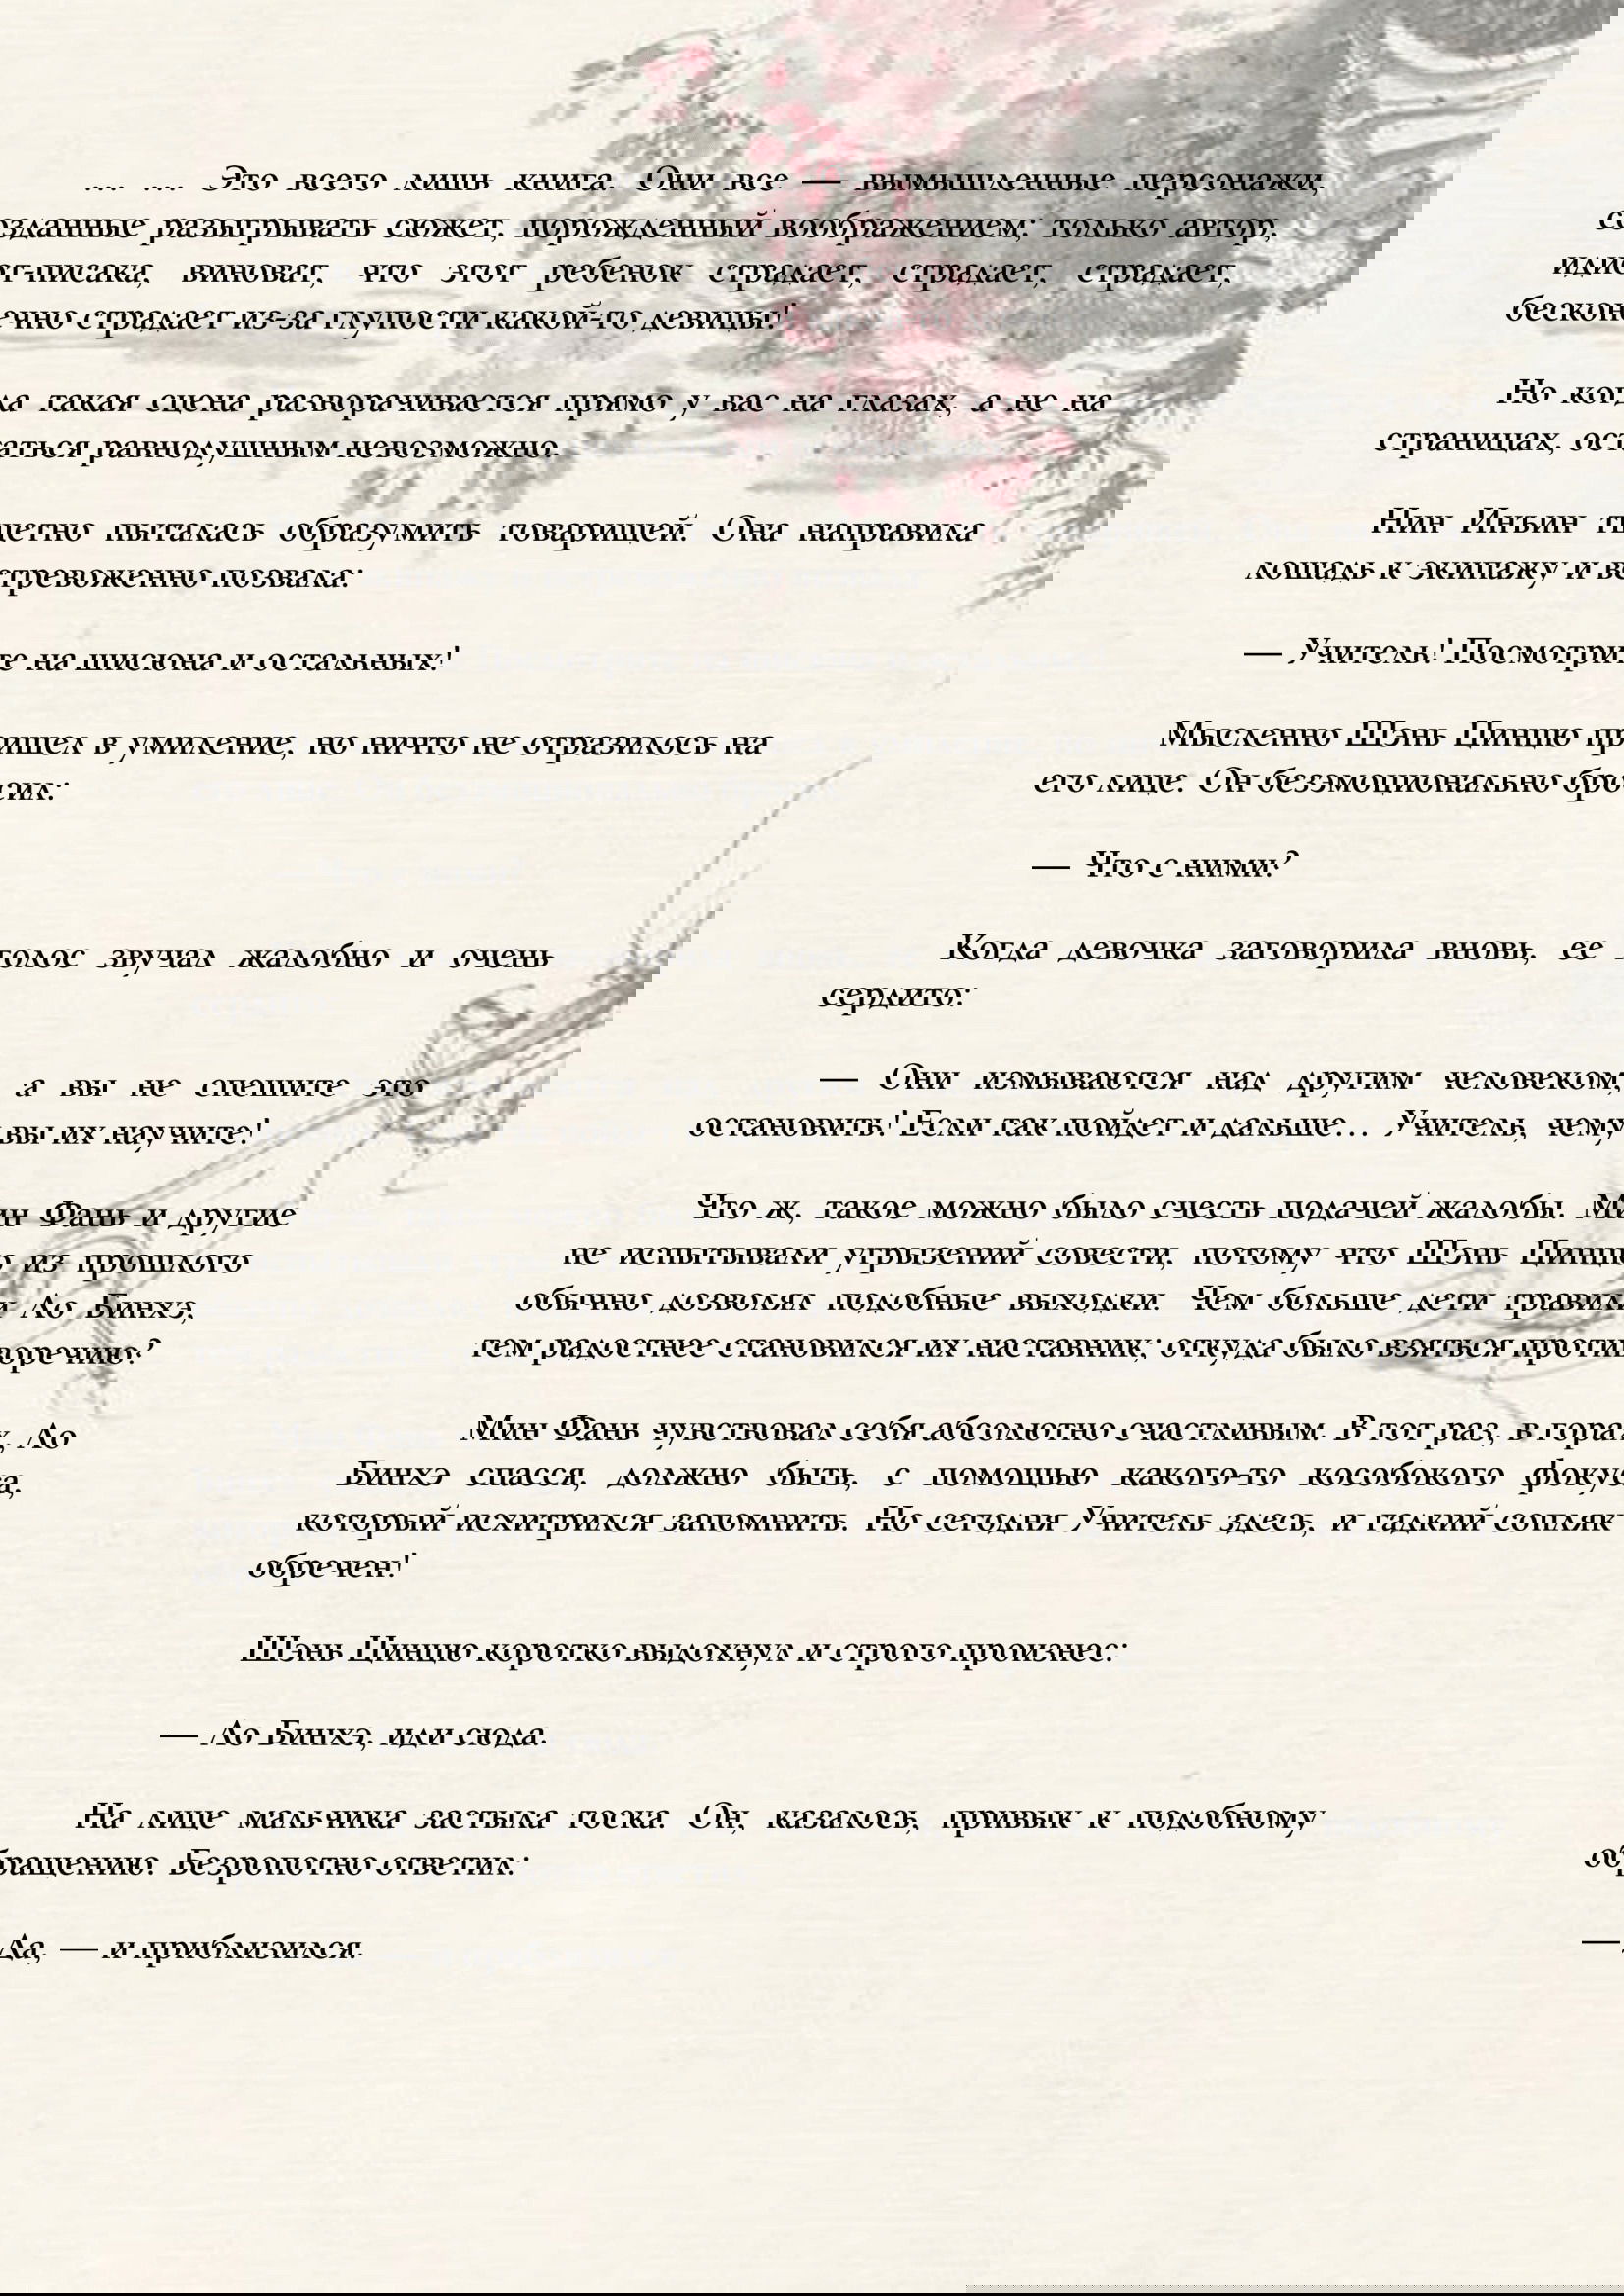 Это всего лишь книга. Они все — вымышленные персонажи,
созданные разыгрывать сюжет, порожденный воображением; только автор,
идиот-писака, виноват, что этот ребенок страдает, страдает, страдает,
бесконечно страдает из-за глупости какой-то девицы!
Но когда такая сцена разворачивается прямо у вас на глазах, а не на
страницах, остаться равнодушным невозможно.
Нин Инъин тщетно пыталась образумить товарищей. Она направила
лошадь к экипажу и встревоженно позвала:
— Учитель! Посмотрите на шисюна и остальных!
Мысленно Шэнь Цинцю пришел в умиление, но ничто не отразилось на
его лице. Он безэмоционально бросил:
— Что с ними?
Когда девочка заговорила вновь, ее голос звучал жалобно и очень
сердито:
— Они измываются над другим человеком, а вы не спешите это
остановить! Если так пойдет и дальше… Учитель, чему вы их научите!
Что ж, такое можно было счесть подачей жалобы. Мин Фань и другие
не испытывали угрызений совести, потому что Шэнь Цинцю из прошлого
обычно дозволял подобные выходки. Чем больше дети травили Ло Бинхэ,
тем радостнее становился их наставник; откуда было взяться противоречию?
Мин Фань чувствовал себя абсолютно счастливым. В тот раз, в горах, Ло
Бинхэ спасся, должно быть, с помощью какого-то кособокого фокуса,
который исхитрился запомнить. Но сегодня Учитель здесь, и гадкий сопляк
обречен!
Шэнь Цинцю коротко выдохнул и строго произнес:
— Ло Бинхэ, иди сюда.
На лице мальчика застыла тоска. Он, казалось, привык к подобному
обращению. Безропотно ответил:
— Да, — и приблизился.